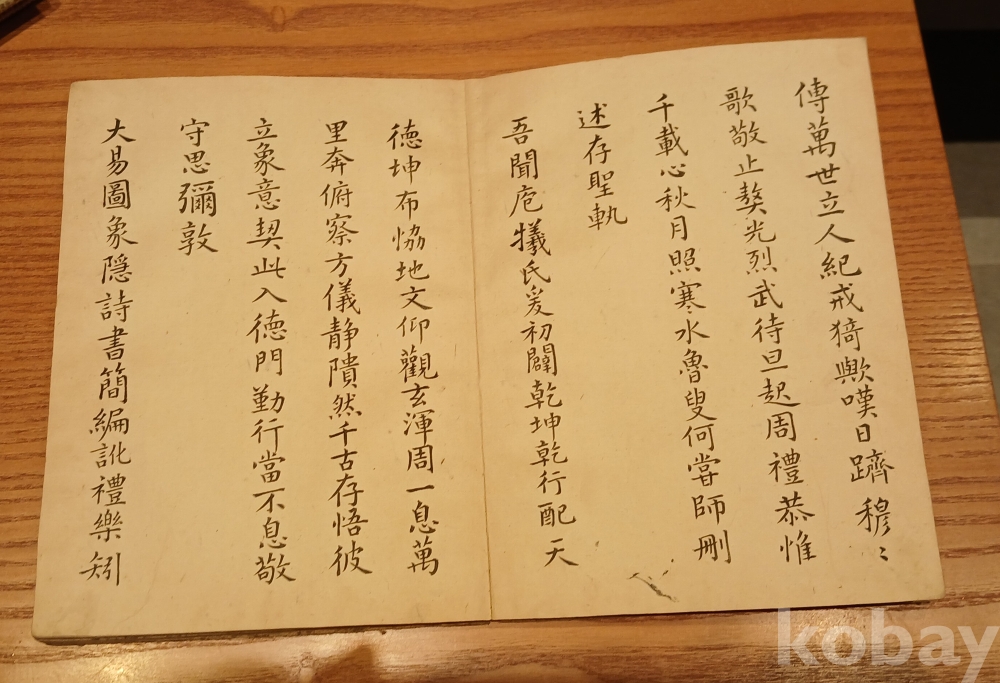 傳萬世立人紀戒猗歟嘆日躋穆〻
歌敬止獒光烈武待旦起周禮恭惟
千載心秋月照寒水魯叟何嘗師刪
述存聖軌
吾聞庖犧氏爰初闢乾坤乾行配天
徳坤布恊地文仰觀玄渾周一息萬
里奔俯察方儀静隤然千古存悟彼
立象意契此入徳門勤行當不息敬
守思彌敦
大易圖象隱詩書簡編訛禮樂矧
kobay